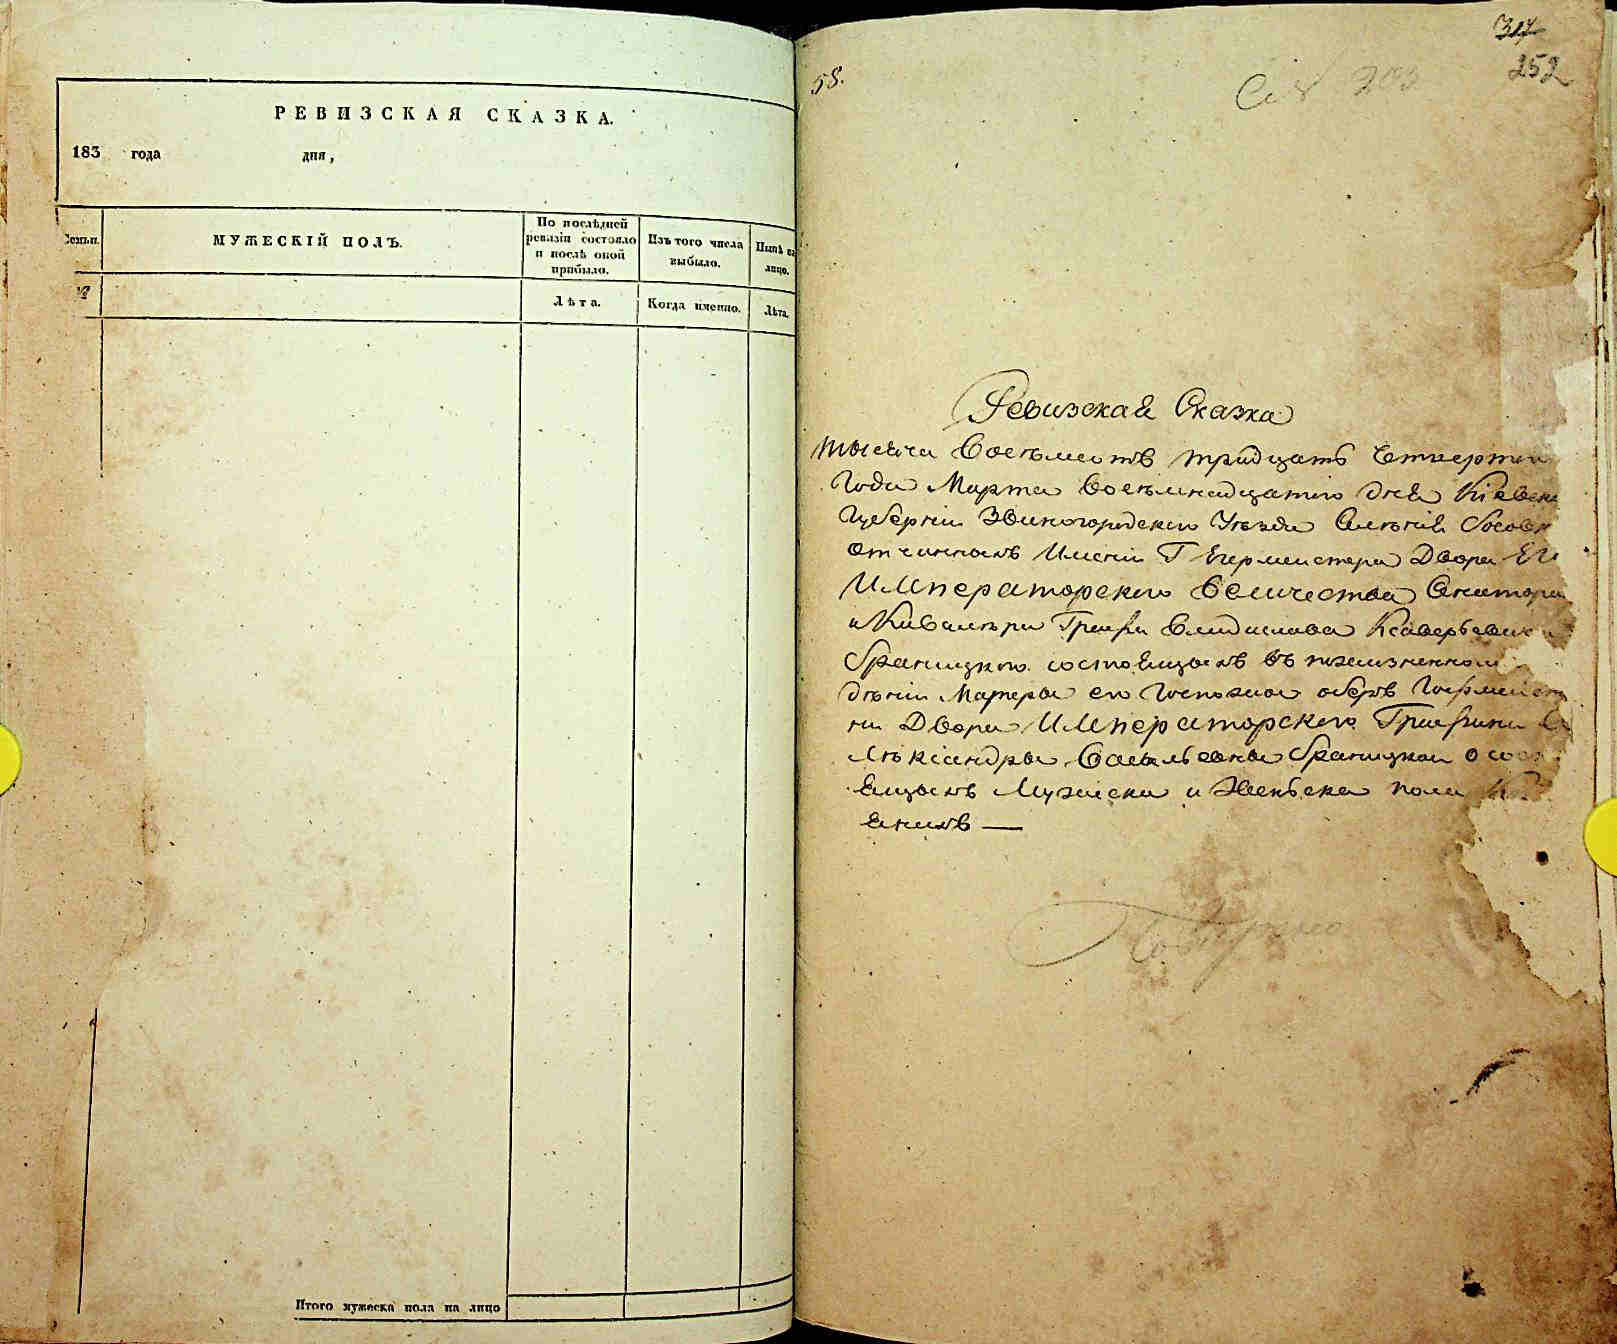 РЕВИЗСКАЯ СКАЗКА.
183 года дня,
Семьи.
МУЖЕСКІЙ ПОЛЪ.
По послѣдней
ревизіи состояло
и послѣ оной
прибыло.
Изъ того числа
выбыло.
Нынѣ на
лицо.
№
Лѣта.
Когда именно.
Лѣта.
Итого мужеска пола на лицо
58.
317
252
203
Ревизская Сказка
тысяча восемьсотъ тридцать четверто
года Марта восемнадцатого дня Кіевск
Губерніи Звиногородского Уезда Селенія
отчинномъ Имени Г Егермейстера Двора Ег
Императорского Величества Сенатора
и Кавалера Графа Владислава Ксаверьевич
Браницкого состоящымъ въ пожизненном
дѣніи Матеры его Госпожы оберъ Гофмейст
ны Двора Императорского Графини
лѣксандры Васыльевны Браницкой о сост
ящыхъ Мужеска и Женьска пола
янахъ —